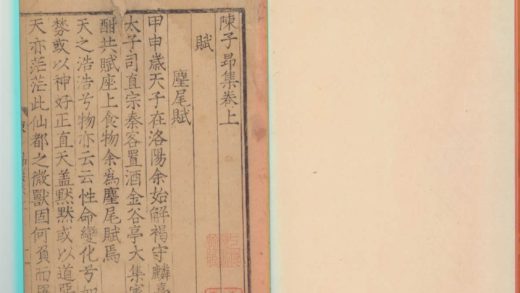 陳子昻集卷上
賦
麈尾賦
甲申歳天子在洛陽余始解褐守麟臺
太子司直宗秦客置酒金谷亭大集賓
酣共賦座上食物余為麈尾賦焉
天之浩浩兮物亦云云性命變化兮如
棼或以神好正直天盖黙黙或以道惡
天亦茫茫此仙都之微獸因何負而罹